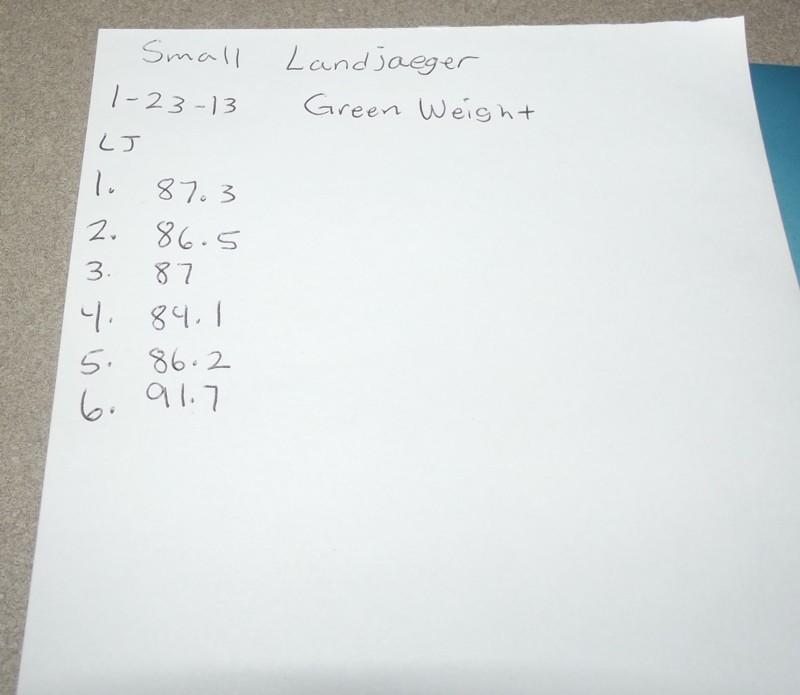 Small Landjaeger
1-23-13 Green Weight
LJ
1. 87.3
2. 86.5
3. 87
4. 84.1
5. 86.2
6. 91.7